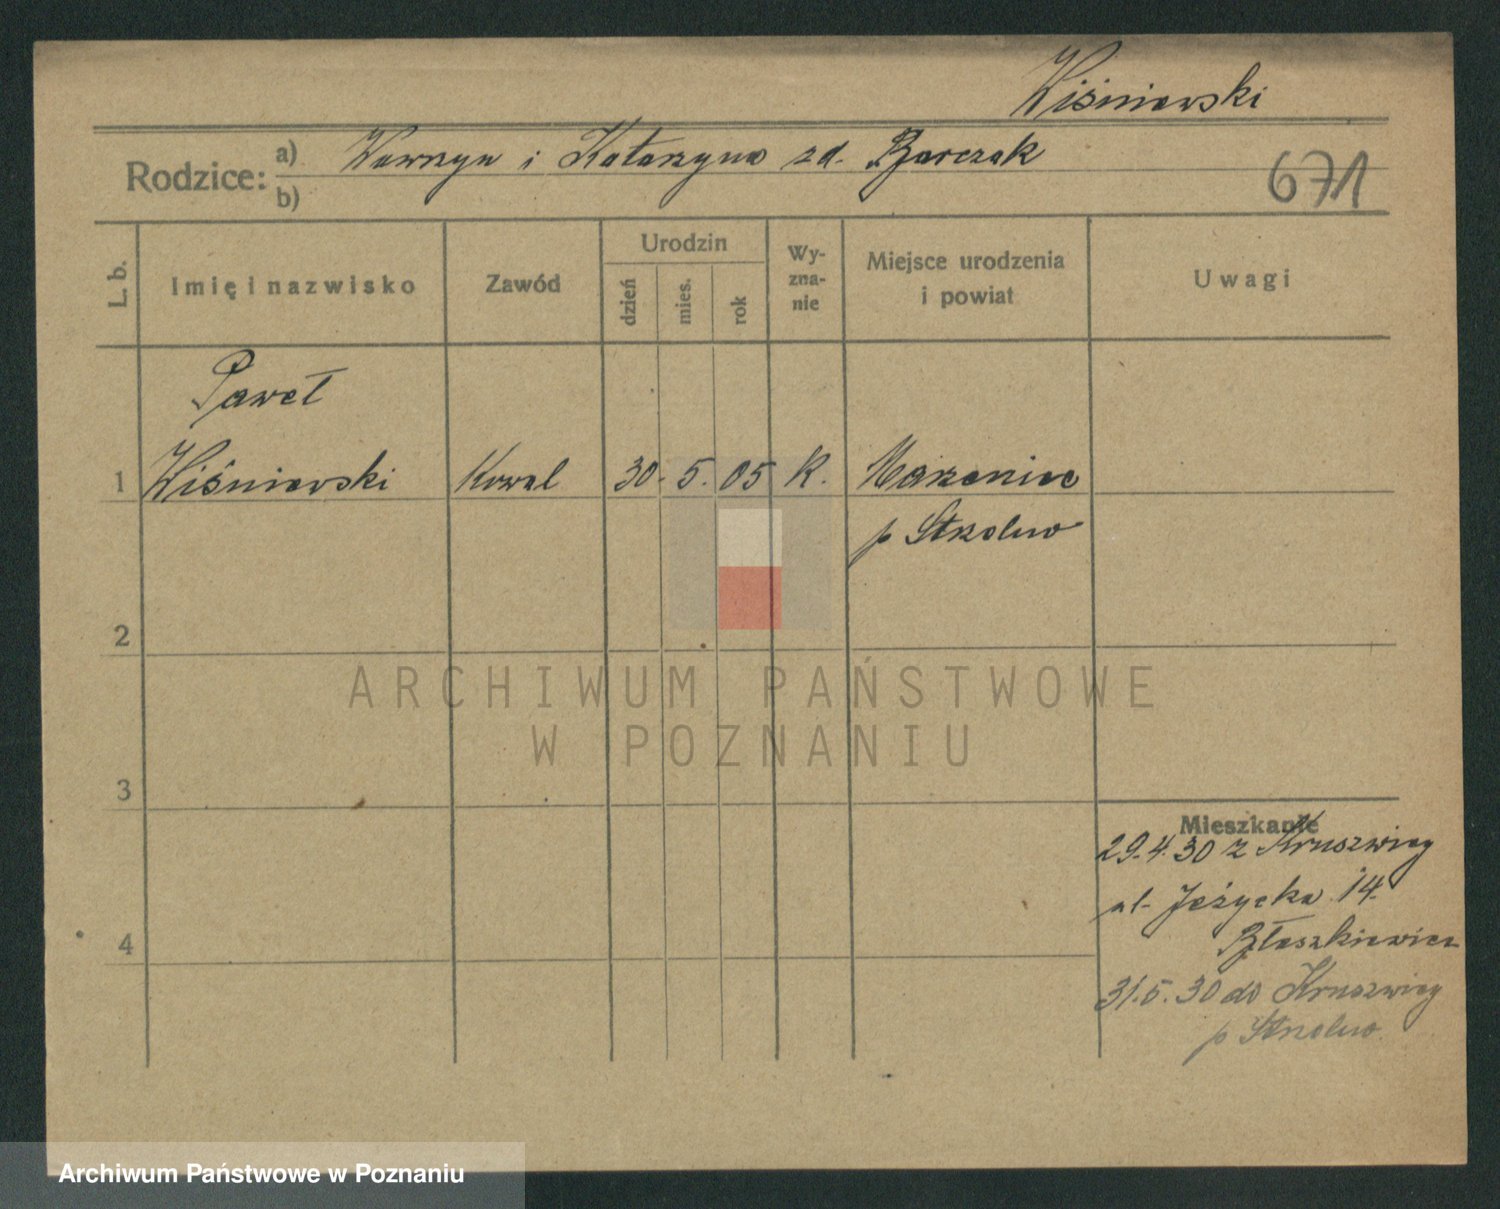 Wiśniewski
Rodzice: a) Wawrzyn i Katarzyna zd. Barczak
b)
671
L. b.
Imię i nazwisko
Zawód
Urodzin
dzień
mies.
rok
Wy-
zna-
nie
Miejsce urodzenia
i powiat
Uwagi
Paweł
1 Wiśniewski Kowal 30. 5. 05 K.
p Strzelno
2
ARCHIWUM PAŃSTWOWE
W POZNANIU
3
Mieszkanie
29.4.30 z Kruszwicy
ul. Jeżycka 14.
Błaszkiewicz
4
31.5.30 do Kruszwicy
p Strzelno
Archiwum Państwowe w Poznaniu